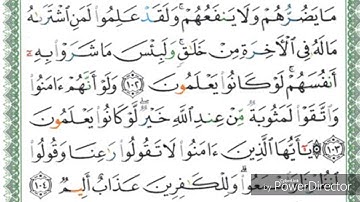 مَا يَضُرُّهُمْ وَلَا يَنفَعُهُمْ ۚ وَلَقَدْ عَلِمُوا۟ لَمَنِ ٱشْتَرَىٰهُ
مَا لَهُۥ فِى ٱلْءَاخِرَةِ مِنْ خَلَٰقٍ ۚ وَلَبِئْسَ مَا شَرَوْا۟ بِهِۦٓ
أَنفُسَهُمْ ۚ لَوْ كَانُوا۟ يَعْلَمُونَ ١٠٢ وَلَوْ أَنَّهُمْ ءَامَنُوا۟
وَٱتَّقَوْا۟ لَمَثُوبَةٌ مِّنْ عِندِ ٱللَّهِ خَيْرٌ ۖ لَّوْ كَانُوا۟ يَعْلَمُونَ
١٠٣ يَٰٓأَيُّهَا ٱلَّذِينَ ءَامَنُوا۟ لَا تَقُولُوا۟ رَٰعِنَا وَقُولُوا۟
وَلِلْكَٰفِرِينَ عَذَابٌ أَلِيمٌ ١٠٤
by PowerDirector